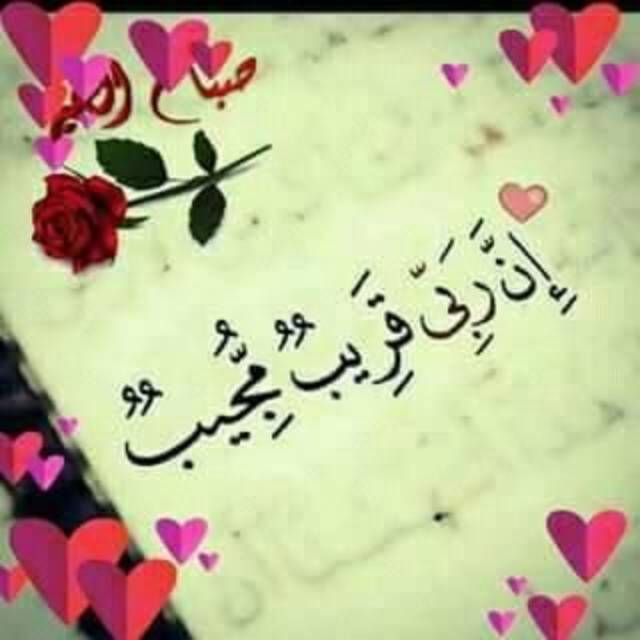 صباح الخير
إِنَّ رَبِّى قَرِيبٌ مُّجِيبٌ